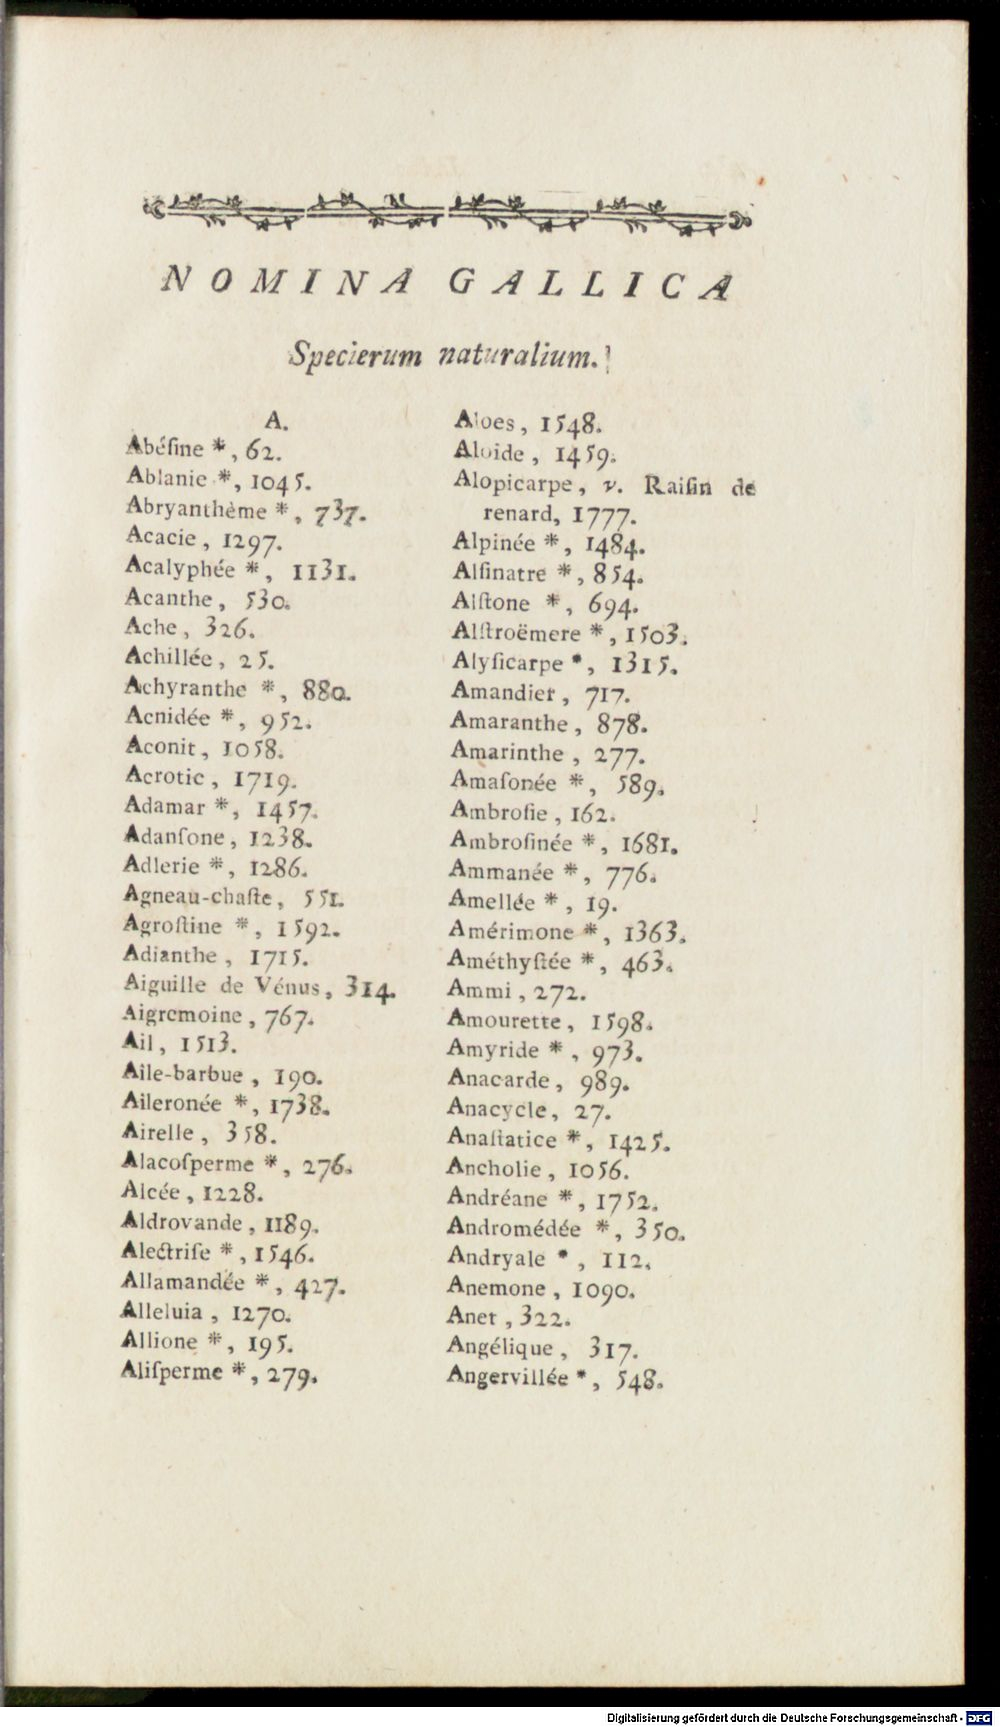 NOMINA GALLICA
Specierum naturalium.
A.
Abéſine *, 62.
Ablanie *, 1045.
Abryanthème *, 737.
Acacie, 1297.
Acalyphée *, 1131.
Acanthe, 530.
Ache, 326.
Achillée, 25.
Achyranthe *, 880.
Acnidée *, 952.
Aconit, 1058.
Acrotic, 1719.
Adamar *, 1457.
Adanſone, 1238.
Adlerie *, 1286.
Agneau-chaſte, 551.
Agroſtine *, 1592.
Adianthe, 1715.
Aiguille de Vénus, 314.
Aigremoine, 767.
Ail, 1513.
Aile-barbue, 190.
Aileronée *, 1738.
Airelle, 358.
Alacoſperme *, 276.
Alcée, 1228.
Aldrovande, 1189.
Alectriſe *, 1546.
Allamandée *, 427.
Alleluia, 1270.
Allione *, 195.
Aliſperme *, 279.
Aloes, 1548.
Aloide, 1459.
Alopicarpe, v. Raiſin de
renard, 1777.
Alpinée *, 1484.
Alſinatre *, 854.
Alſtone *, 694.
Alſtroëmere *, 1503.
Alyſicarpe *, 1315.
Amandier, 717.
Amaranthe, 878.
Amarinthe, 277.
Amaſonée *, 589.
Ambroſie, 162.
Ambroſinée *, 1681.
Ammanée *, 776.
Amellée *, 19.
Amérimone *, 1363.
Améthyſtée *, 463.
Ammi, 272.
Amourette, 1598.
Amyride *, 973.
Anacarde, 989.
Anacycle, 27.
Anaſtatice *, 1425.
Ancholie, 1056.
Andréane *, 1752.
Andromédée *, 350.
Andryale *, 112.
Anemone, 1090.
Anet, 322.
Angélique, 317.
Angervillée *, 548.
Digitalisierung gefördert durch die Deutsche Forschungsgemeinschaft - DFG